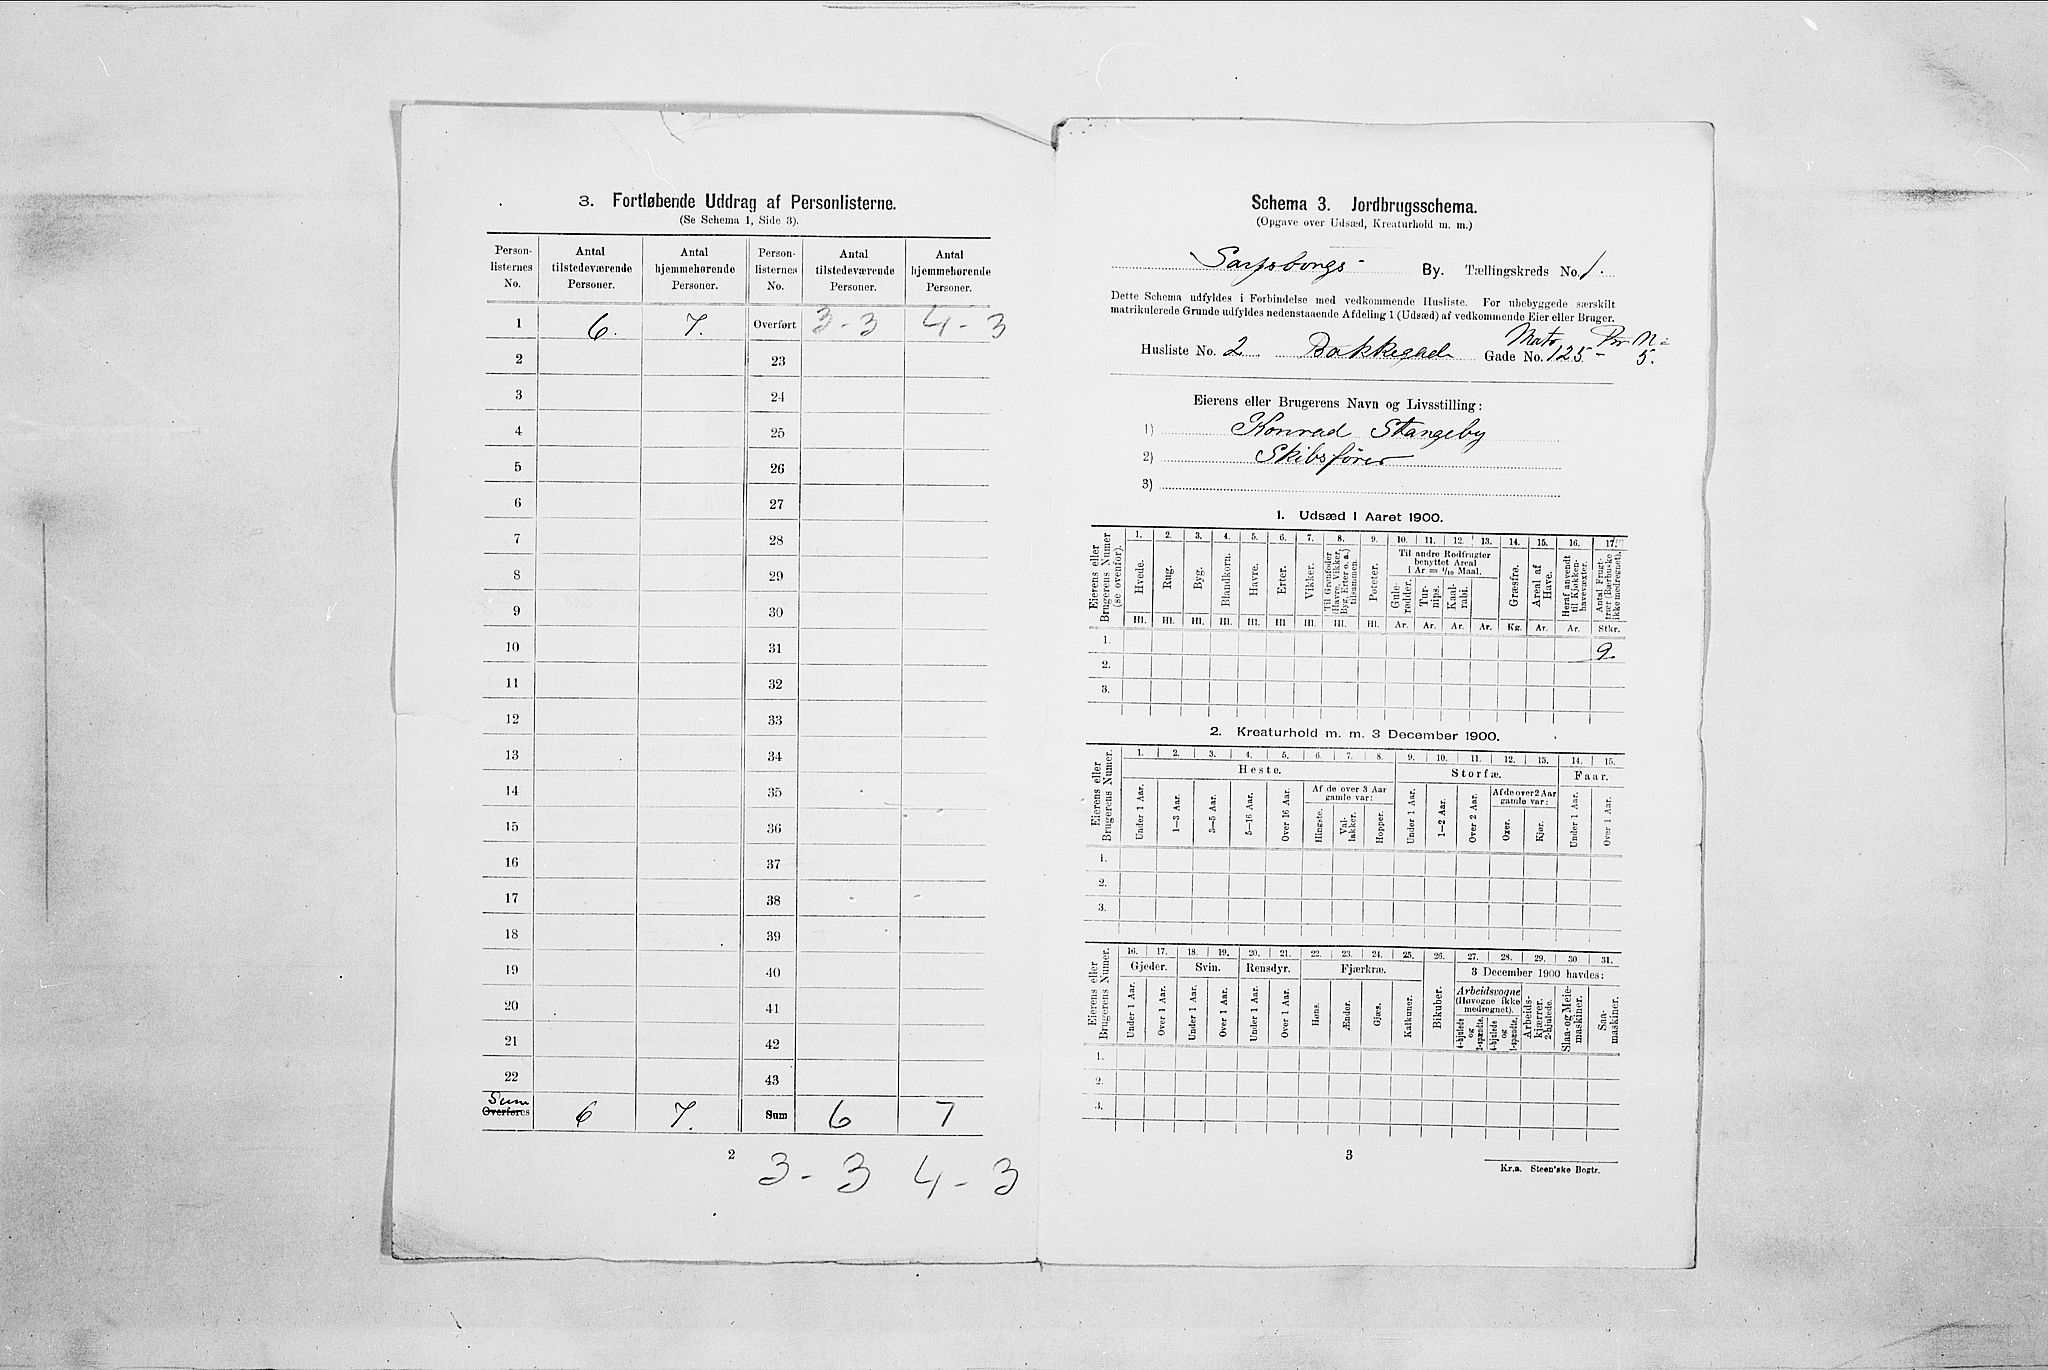 3. Fortløbende Uddrag af Personlisterne.
(Se Schema 1, Side 3).
Person-listernes No. | Antal tilstedeværende Personer. | Antal hjemmehørende Personer. | Person-listernes No. | Antal tilstedeværende Personer. | Antal hjemmehørende Personer.
1 | 6. | 7. | Overført | 3 - 3 | 4 - 3
2 | 23
3 | 24
4 | 25
5 | 26
6 | 27
7 | 28
8 | 29
9 | 30
10 | 31
11 | 32
12 | 33
13 | 34
14 | 35
15 | 36
16 | 37
17 | 38
18 | 39
19 | 40
20 | 41
21 | 42
22 | 43
Sum
Overføres | 6 | 7. | Sum | 6 | 7
2
3 - 3 4 - 3
Schema 3. Jordbrugsschema.
(Opgave over Udsæd, Kreaturhold m. m.)
Sarpsborgs By. Tællingskreds No. 1.
Dette Schema udfyldes i Forbindelse med vedkommende Husliste. For ubebyggede særskilt
matrikulerede Grunde udfyldes nedenstaaende Afdeling 1 (Udsæd) af vedkommende Eier eller Bruger.
Husliste No. 2 Bakkegad Gade No. 125 - 5.
Eierens eller Brugerens Navn og Livsstilling:
1) Konrad Stangeby
2) Skibsfører
3)
1. Udsæd i Aaret 1900.
Eierens eller Brugerens Numer (se ovenfor). | 1. | 2. | 3. | 4. | 5. | 6. | 7. | 8. | 9. | 10. | 11. | 12. | 13. | 14. | 15. | 16. | 17.
Hvede. | Rug. | Byg. | Blandkorn. | Havre. | Erter. | Vikker. | Til Grønfoder (Havre, Vikker, Byg, Erter o. a.) tilsammen. | Poteter. | Til andre Rodfrugter benyttet Areal i Ar = 1/10 Maal. | Gule-rødder. | Tur-nips. | Kaal-rabi. | Græsfrø. | Areal af Have. | Heraf anvendt til Kjøkken-havevæxter. | Antal Frugt-trær (Bærbuske ikke medregnet).
Hl. | Hl. | Hl. | Hl. | Hl. | Hl | Hl. | Hl. | Hl. | Ar. | Ar. | Ar. | Ar. | Kg. | Ar. | Ar. | Stkr.
1. | 9.
2.
3.
2. Kreaturhold m. m. 3 December 1900.
Eierens eller Brugerens Numer. | 1. | 2. | 3. | 4. | 5. | 6. | 7. | 8. | 9. | 10. | 11. | 12. | 13. | 14. | 15.
Heste. | Storfæ. | Faar.
Under 1 Aar. | 1—3 Aar. | 3—5 Aar. | 5—16 Aar. | Over 16 Aar. | Af de over 3 Aar gamle var: | Hingste. | Val-lakker. | Hopper. | Under 1 Aar. | 1—2 Aar. | Over 2 Aar. | Af de over 2 Aar gamle var: | Oxer. | Kjør. | Under 1 Aar. | Over 1 Aar.
1.
2.
3.
Eierens eller Brugerens Numer. | 16. | 17. | 18. | 19. | 20. | 21. | 22. | 23. | 24. | 25. | 26. | 27. | 28. | 29. | 30 | 31.
Gjeder. | Svin. | Rensdyr. | Fjærkræ. | Bikuber. | 3 December 1900 havdes:
Under 1 Aar. | Over 1 Aar. | Under 1 Aar. | Over 1 Aar. | Under 1 Aar. | Over 1 Aar. | Høns. | Ænder. | Gjæs. | Kalkuner. | Arbeidsvogne (Høvogne ikke medregnet). | 4-hjulede og 2-spændte. | 4-hjulede og 1-spændte. | Arbeids-kjærrer, 2-hjulede. | Slaa- og Meie-maskiner. | Saa-maskiner.
1.
2.
3.
3
Kr.a. Steen'ske Bogtr.